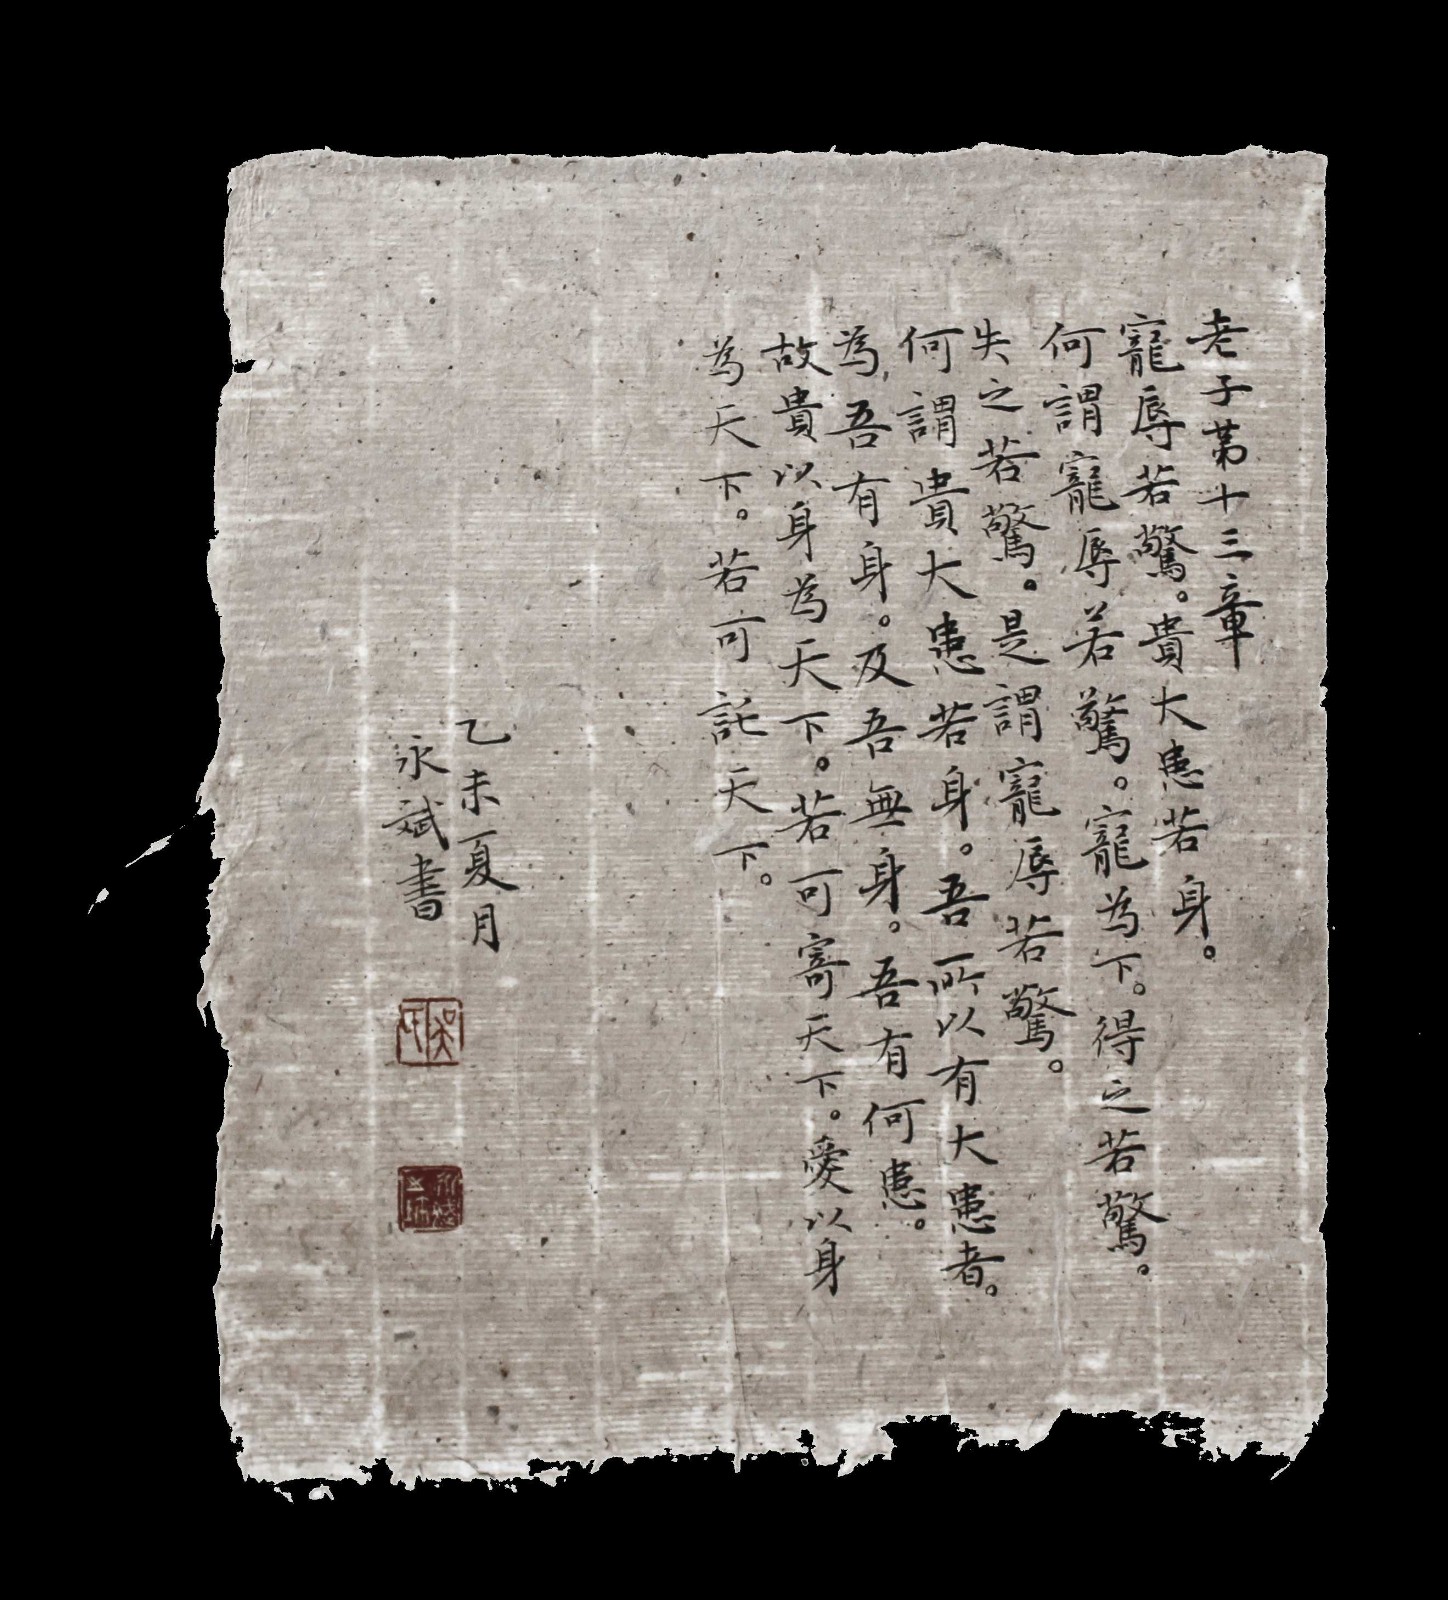 老子第十三章
寵辱若驚。貴大患若身。
何謂寵辱若驚。寵為下。得之若驚。
失之若驚。是謂寵辱若驚。
何謂貴大患若身。吾所以有大患者。
為吾有身。及吾無身。吾有何患。
故貴以身為天下。若可寄天下。愛以身
為天下。若可託天下。
乙未夏月
永斌書
吳氏